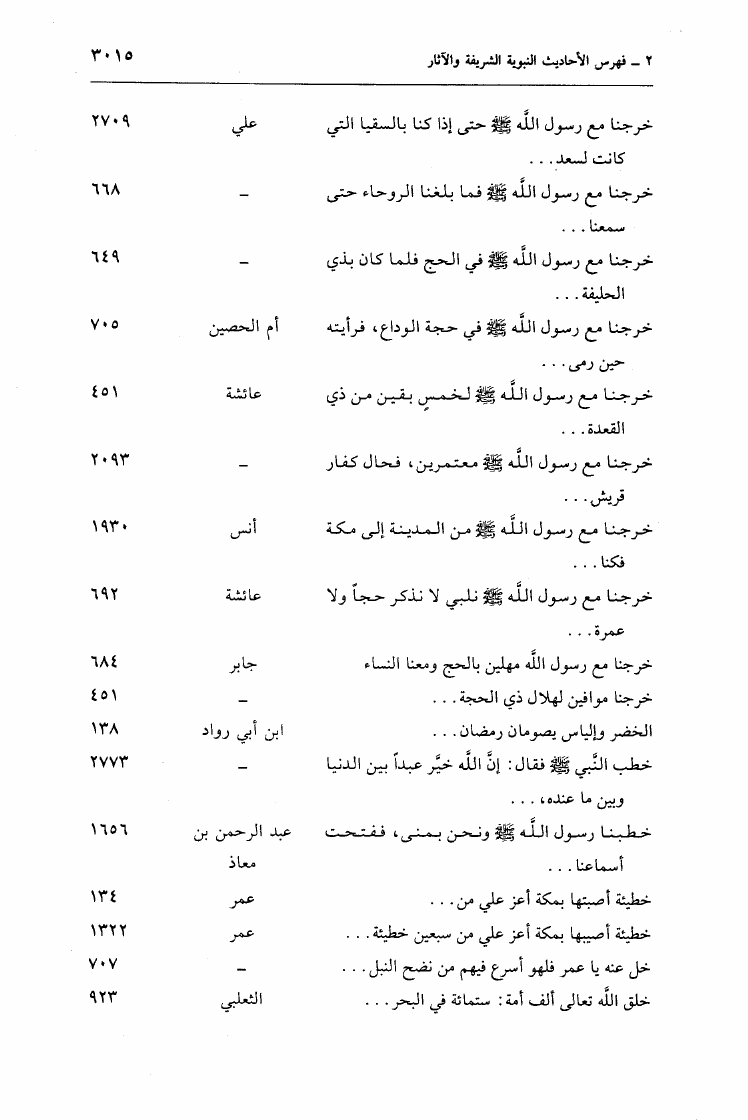 ٢ ـ فهرس الأحاديث النبوية الشريفة والآثار ٣٠١٥
خرجنا مع رسول اللَّه ﷺ حتى إذا كنا بالسقيا التي علي ٢٧٠٩
كانت لسعد...
خرجنا مع رسول اللَّه ﷺ فما بلغنا الروحاء حتى ـ ٦٦٨
سمعنا...
خرجنا مع رسول اللَّه ﷺ في الحج فلما كان بذي ـ ٦٤٩
الحليفة...
خرجنا مع رسول اللَّه ﷺ في حجة الوداع، فرأيته أم الحصين ٧٠٥
حين رمى...
خرجنا مع رسول اللَّه ﷺ لخمسٍ بقين من ذي عائشة ٤٥١
القعدة...
خرجنا مع رسول اللَّه ﷺ معتمرين، فحال كفار ـ ٢٠٩٣
قريش...
خرجنا مع رسول اللَّه ﷺ من المدينة إلى مكة أنس ١٩٣٠
فكنا...
خرجنا مع رسول اللَّه ﷺ نلبي لا نذكر حجاً ولا عائشة ٦٩٢
عمرة...
خرجنا مع رسول اللَّه مهلين بالحج ومعنا النساء جابر ٦٨٤
خرجنا موافين لهلال ذي الحجة... ـ ٤٥١
الخضر وإلياس يصومان رمضان... ابن أبي رواد ١٣٨
خطب النَّبي ﷺ فقال: إنَّ اللَّه خيَّر عبداً بين الدنيا ـ ٢٧٧٣
وبين ما عنده،...
خطبنا رسول اللَّه ﷺ ونحن بمنى، ففتحت عبد الرحمن بن ١٦٥٦
أسماعنا... معاذ
خطيئة أصبتها بمكة أعز علي من... عمر ١٣٤
خطيئة أصيبها بمكة أعز علي من سبعين خطيئة... عمر ١٣٢٢
خل عنه يا عمر فلهو أسرع فيهم من نضح النبل... ـ ٧٠٧
خلق اللَّه تعالى ألف أمة: ستمائة في البحر... الثعلبي ٩٢٣